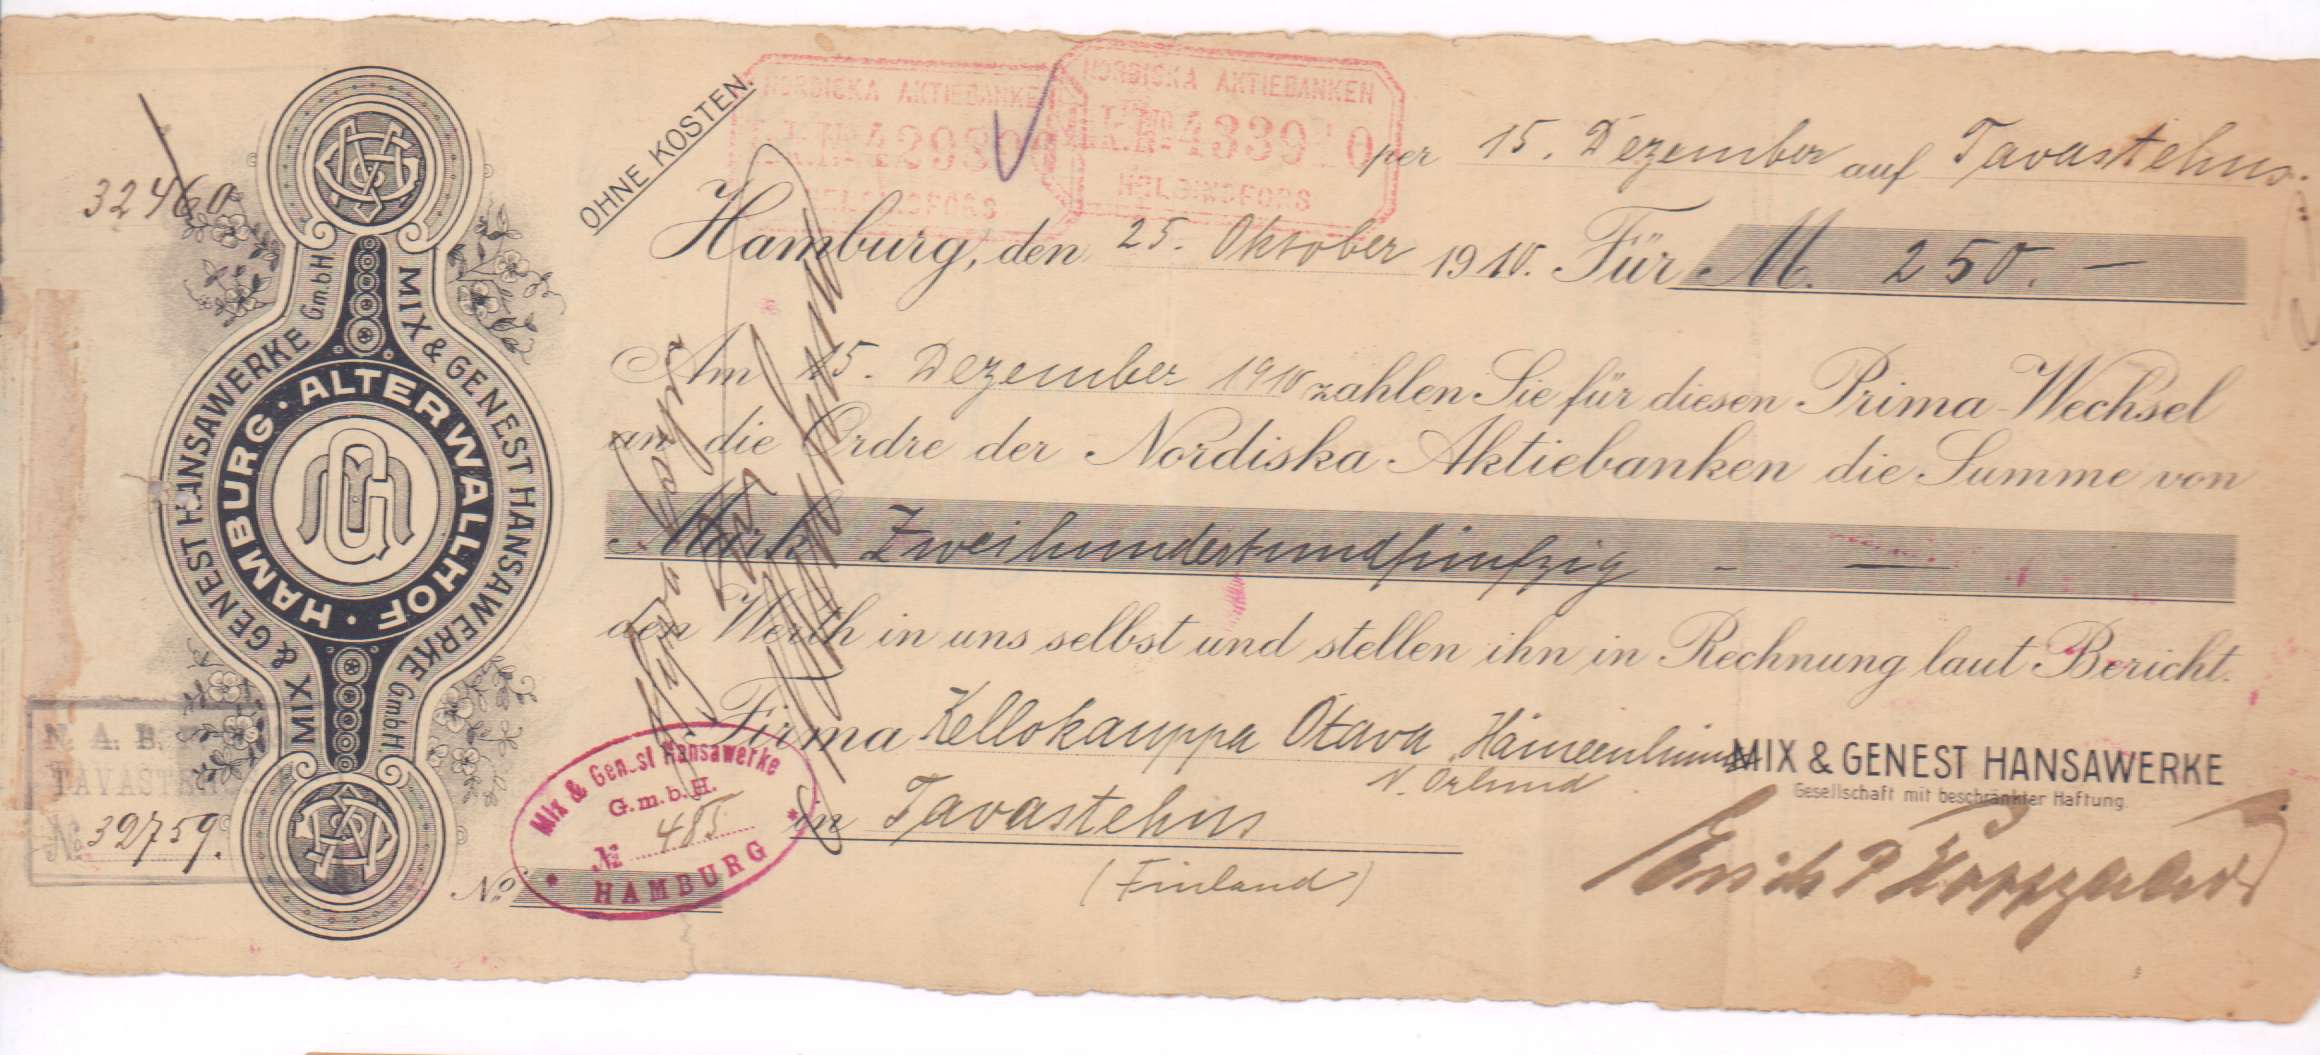 OHNE KOSTEN.
NORDISKA AKTIEBANKEN
HELSINGFORS
NORDISKA AKTIEBANKEN
HELSINGFORS
per 15. Dezember auf Tavastehus.
32460
Hamburg, den 25. Oktober 1910. Für M. 250. —
Am 15. Dezember 1910 zahlen Sie für diesen Prima-Wechsel
an die Ordre der Nordiska Aktiebanken die Summe von
Mark Zweihundertundfünfzig - —
den Werth in uns selbst und stellen ihn in Rechnung laut Bericht.
Firma Kellokauppa Otava, Hämeenlinna
MIX & GENEST HANSAWERKE
Gesellschaft mit beschränkter Haftung.
in Tavastehus
(Finland)
No
MIX & GENEST HANSAWERKE G.m.b.H.
MIX & GENEST HANSAWERKE G.m.b.H.
HAMBURG · ALTERWALLHOF ·
MG
Mix & Genest Hansawerke
G.m.b.H.
No 485
HAMBURG
N. A. B.
TAVASTEHUS
No 39759.